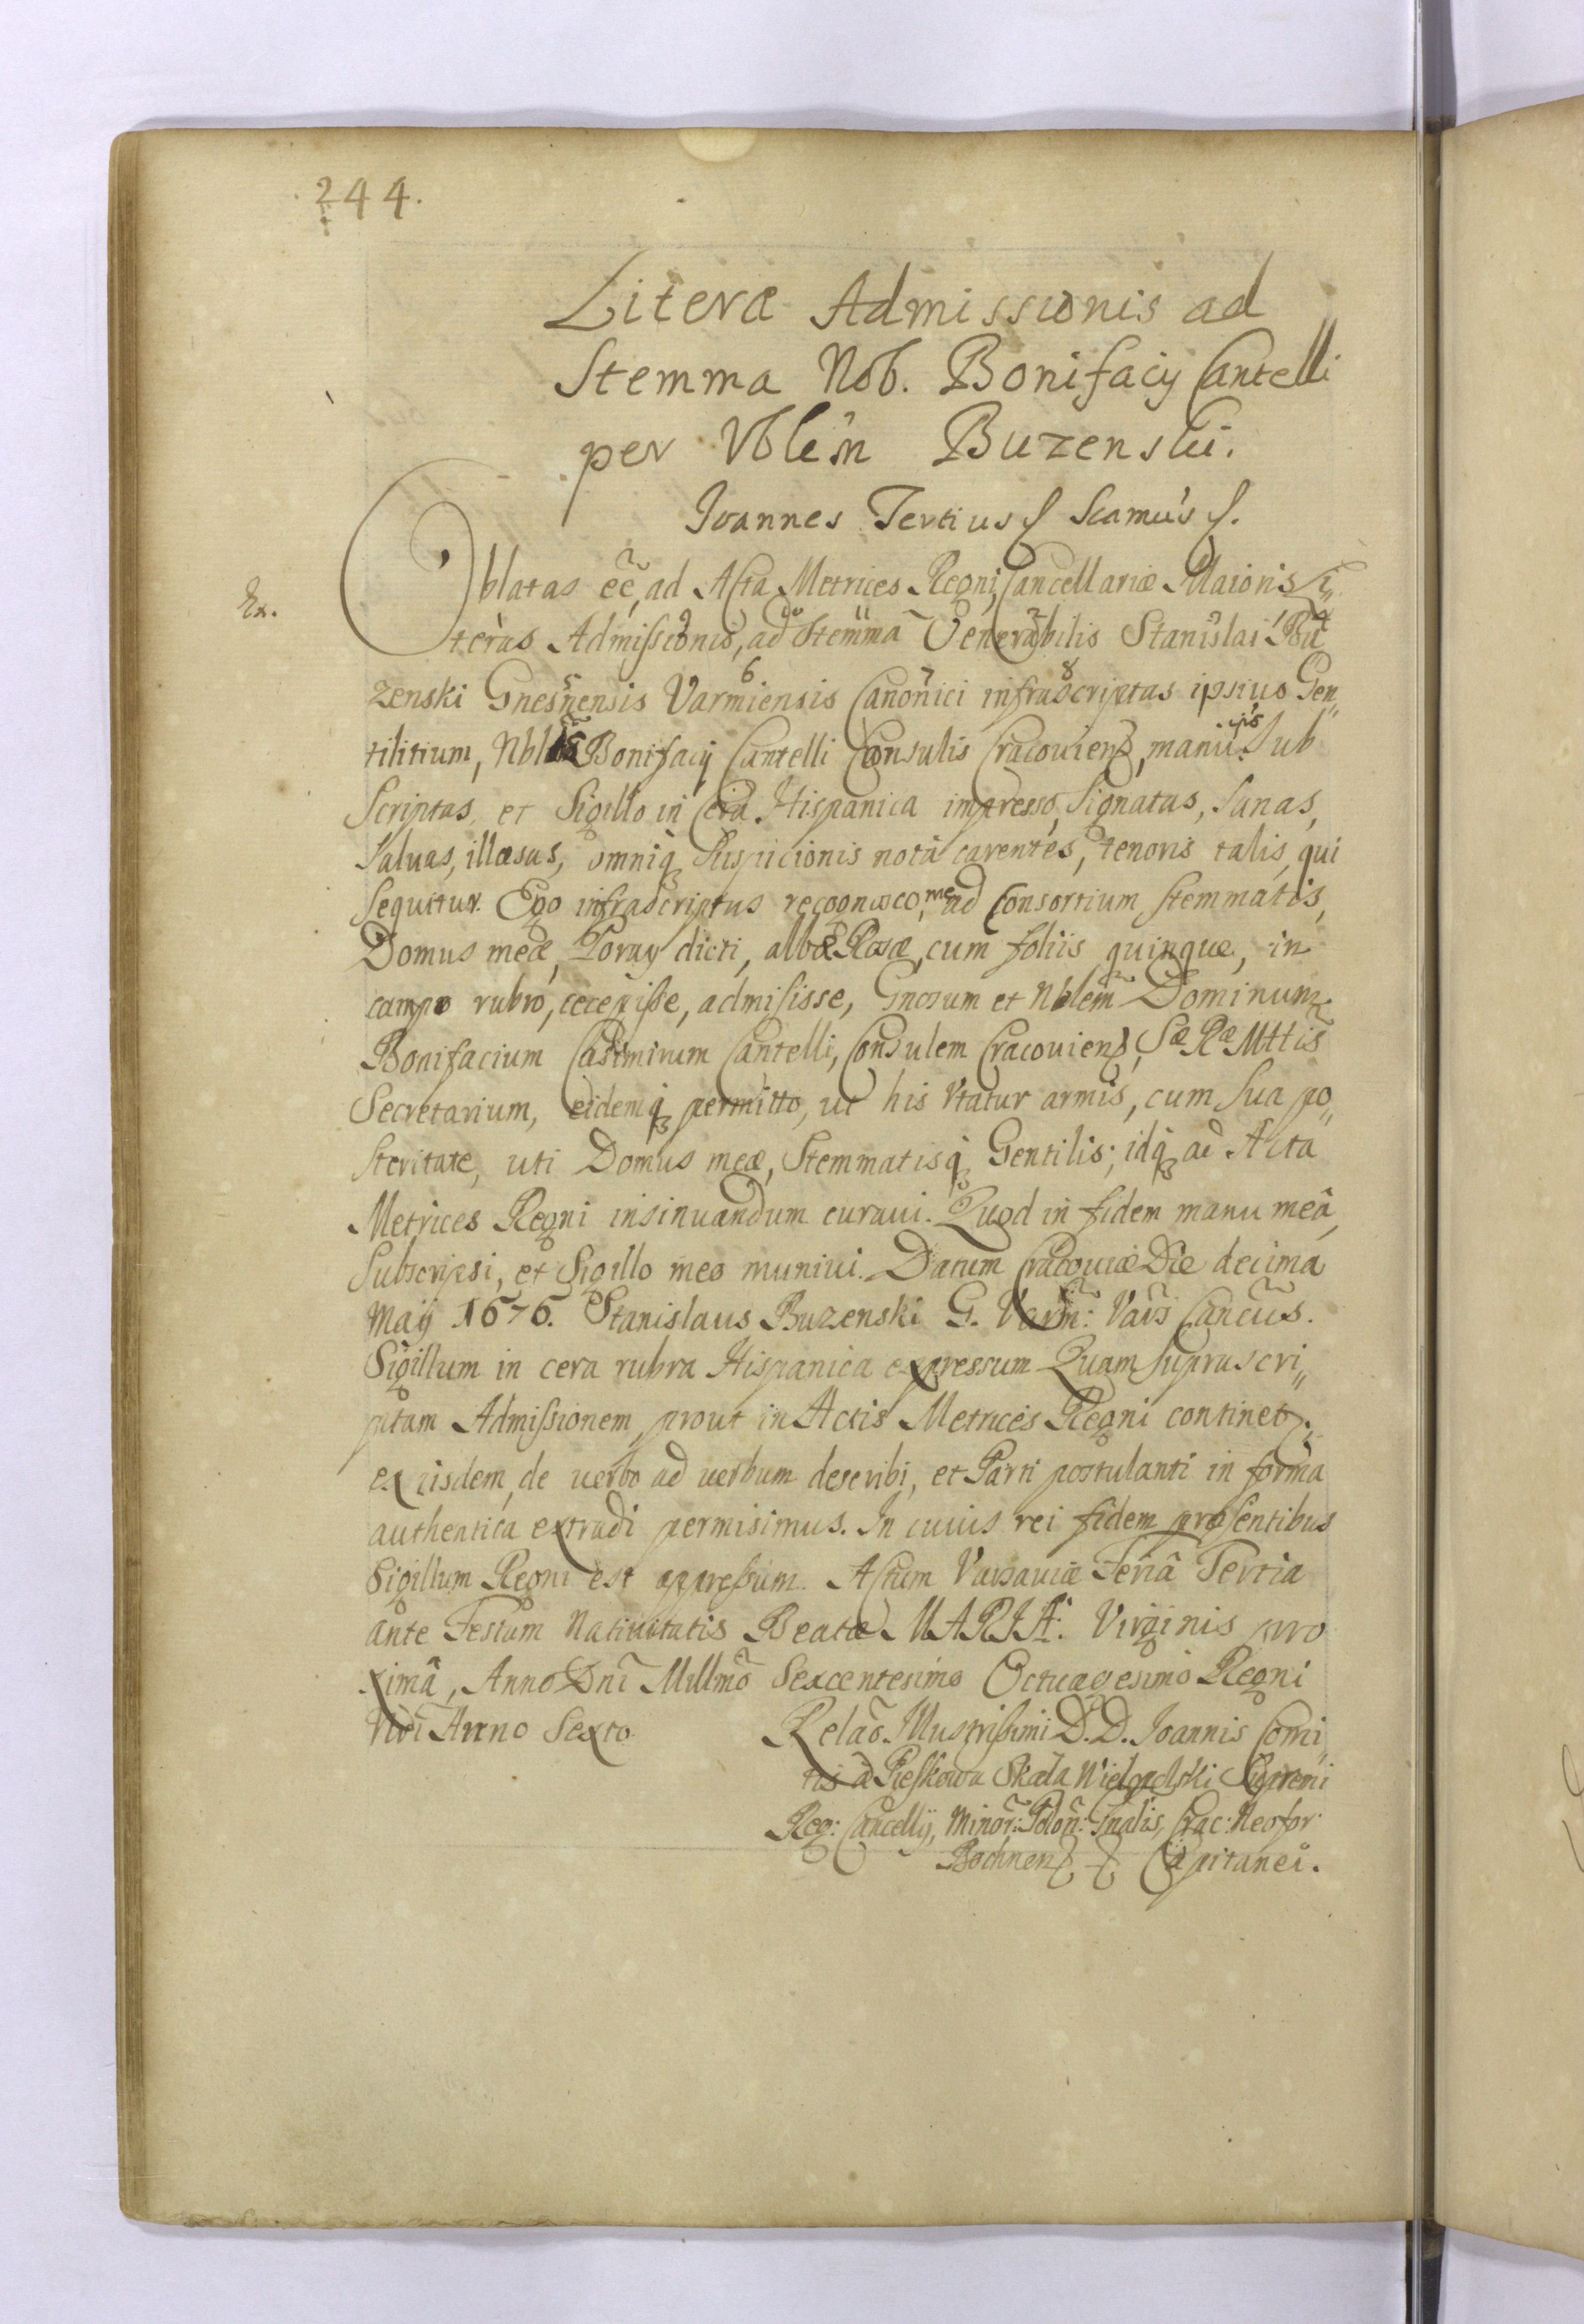 244.
Literæ Admissionis ad
Stemma Nob. Bonifacij Cantelli
per Vblẽm Buzenski.
Joannes Tertius f Scamús f.
Ex.
Oblatas eẽ, ad Acta Metrices Regni, Cancellariæ Maioris Li„
teras Admissionis, ad Stemma Venerabilis Stanislai Bu
zenski Gnesnensis Varmiensis Canonici infrascriptas ipsius Gen„
tilitium, Nblis Bonifacij Cantelli Consulis Cracouiens, manu ipsis Sub
scriptas, et Sigillo in Cera Hispanica impresso, Signatas, Sanas,
Saluas, illæsas, omniq Suspicionis notâ carentes, tenoris talis, qui
Sequitur. Ego infrascriptus recognosco, me ad Consortium Stemmatis,
Domus meæ, Poray dicti, albæ Rosæ, cum foliis quinque, in
campo rubro, cecepisse, admisisse, Gnosum et Nblem Dominum
Bonifacium Casimirum Cantelli, Consulem Cracouiens, Sæ Ræ Mttis
Secretarium, eidemq permitto, ut his Vtatur armis, cum Sua po„
steritate, uti Domus meæ, Stemmatisq Gentilis; idq ad Acta
Metrices Regni insinuandum curaui. Quod in fidem manu meâ
Subscripsi, et Sigillo meo muniui. Datum Cracouiæ Die decima
Maÿ 1676. Stanislaus Buzenski G. Varm: Vars Cancũs.
Sigillum in cera rubra Hispanica expressum Quam suprascri„
ptam Admissionem, prout in Actis Metrices Regni continet,
ex iisdem, de uerbo ad uerbum describi, et Parti postulanti in forma
authentica extradi permisimus. In cuius rei fidem præsentibus
Sigillum Regni est appressum. Actum Varsauiæ Feriâ Tertia
ante Festum Natiuitatis Beatæ MARIÆ Virginis pro
ximâ, Anno Dni Millmõ Sexcentesimo Octuagesimo Regni
Nri Anno Sexto.
Relaõ. Illustrissimi D. D. Joannis Comi
tis à Pieskowa Skala Wielopolski Supremi
Reg: Cancellÿ, Minor: Polon: Gnalis, Crac: Neofor:
Bochnens Capitanei.